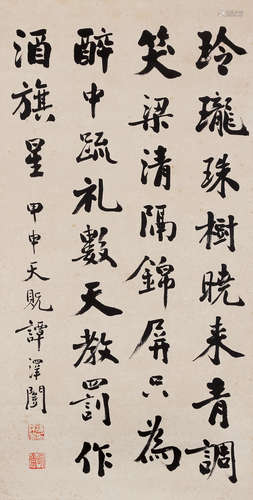 玲瓏珠樹曉来青調
笑梁清隔錦屏只為
醉中疏礼數天教罰作
酒旗星
甲申天貺譚澤闓